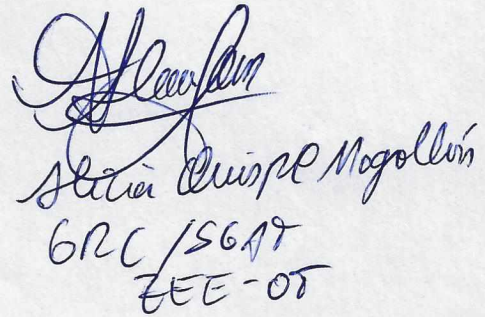 Alicia Quispe Mogollón
GRC/SGAT
ZEE-OT